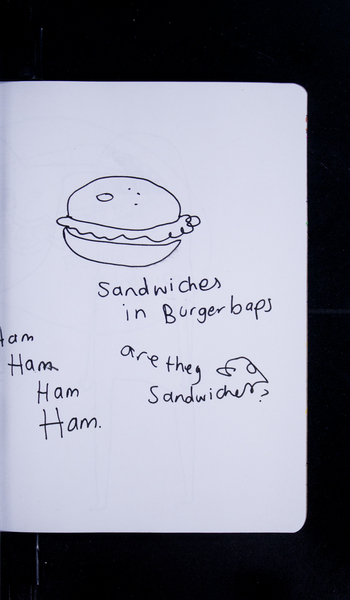 Sandwiches
in Burgerbaps
are they
Sandwiches?
Ham
Ham
Ham
Ham.